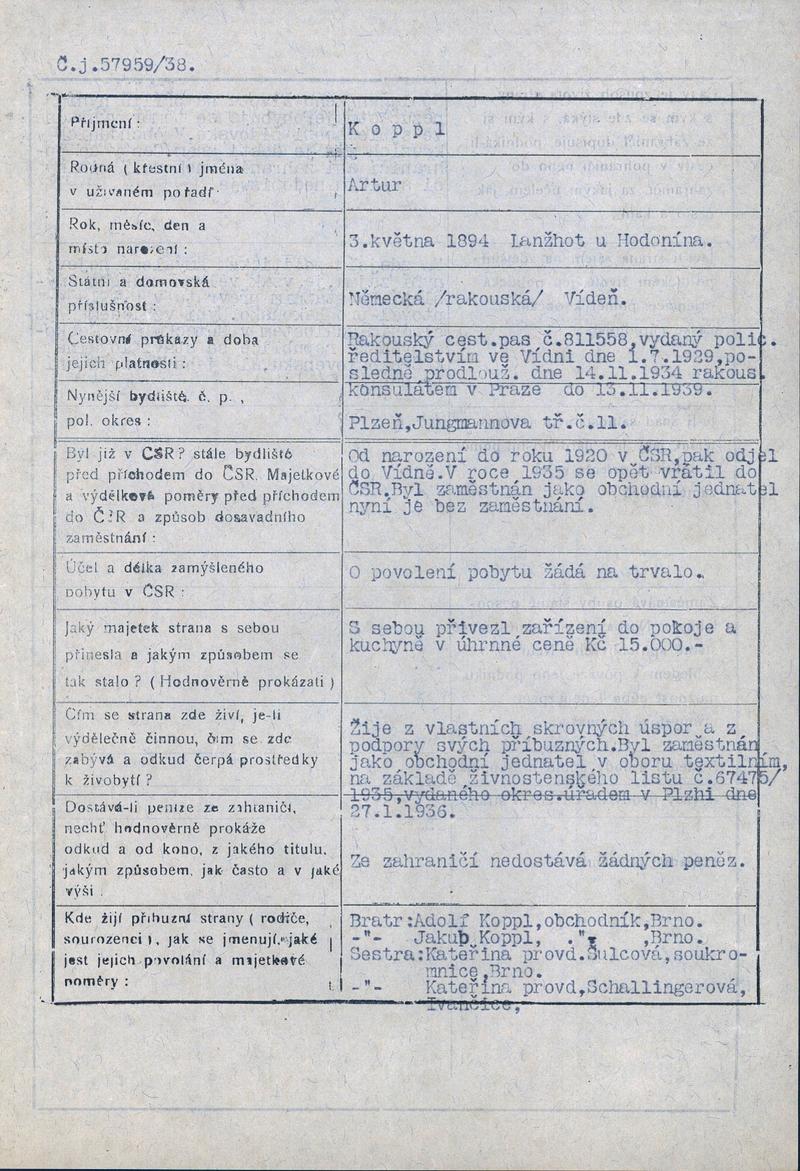 Č.j.57959/38.
Příjmení:
Koppl
Rodná (křestní) jména
v užívaném pořadí
Artur
Rok, měsíc, den a
místo narození:
3.května 1894 Lanžhot u Hodonína.
Státní a domovská
příslušnost:
Německá /rakouská/ Vídeň.
Cestovní průkazy a doba
jejich platnosti:
Rakouský cest.pas č.811558,vydaný polic.
ředitelstvím ve Vídni dne 1.7.1929,po-
sledně prodlouž. dne 14.11.1934 rakous.
konsulátem v Praze do 13.11.1939.
Nynější bydliště, č. p.,
pol. okres:
Plzeň,Jungmannova tř.č.11.
Byl již v ČSR? stálé bydliště
před příchodem do ČSR. Majetkové
a výdělkové poměry před příchodem
do ČSR a způsob dosavadního
zaměstnání:
Od narození do roku 1920 v ČSR,pak odjel
do Vídně.V roce 1935 se opět vrátil do
ČSR.Byl zaměstnán jako obchodní jednatel
nyní je bez zaměstnání.
Účel a délka zamýšleného
pobytu v ČSR:
O povolení pobytu žádá na trvalo.
Jaký majetek strana s sebou
přinesla a jakým způsobem se
tak stalo? (Hodnověrně prokázati)
S sebou přivezl zařízení do pokoje a
kuchyně v úhrnné ceně Kč 15.000.-
Čím se strana zde živí, je-li
výdělečně činnou, čím se zde
zabývá a odkud čerpá prostředky
k živobytí?
Žije z vlastních skrovných úspor a z
podpory svých příbuzných.Byl zaměstnán
jako obchodní jednatel v oboru textilním,
na základě živnostenského listu č.67475/
1935,vydaného okres.úřadem v Plzni dne
27.1.1936.
Dostává-li peníze ze zahraničí,
nechť hodnověrně prokáže
odkud a od koho, z jakého titulu,
jakým způsobem, jak často a v jaké
výši.
Ze zahraničí nedostává žádných peněz.
Kde žijí příbuzní strany (rodiče,
sourozenci), jak se jmenují, jaké
jest jejich povolání a majetkové
poměry:
Bratr:Adolf Koppl,obchodník,Brno.
-"- Jakub Koppl, ." ,Brno.
Sestra:Kateřina provd.Šulcová,soukro-
mnice,Brno.
-"- Kateřina provd,Schallingerová,
Ivančice,